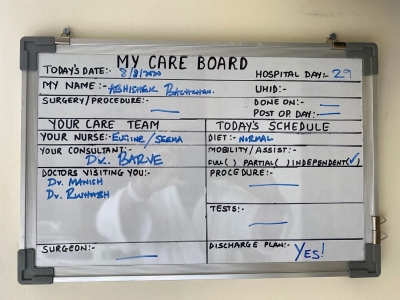 MY CARE BOARD
TODAY'S DATE:- 8/8/2020
HOSPITAL DAY:- 29
MY NAME:- ABHISHEK BACHCHAN.
UHID:-
SURGERY/PROCEDURE:-
DONE ON:-
POST OP. DAY:-
YOUR CARE TEAM
TODAY'S SCHEDULE
YOUR NURSE:- EUGINE/SEEMA
DIET:- NORMAL
YOUR CONSULTANT:-
DR. BARVE
MOBILITY/ASSIST:-
FULL( ) PARTIAL( ) INDEPENDENT(✓)
DOCTORS VISITING YOU:-
DR. MANISH
DR.
PROCEDURE:-
TESTS:-
SURGEON:-
DISCHARGE PLAN:- YES!